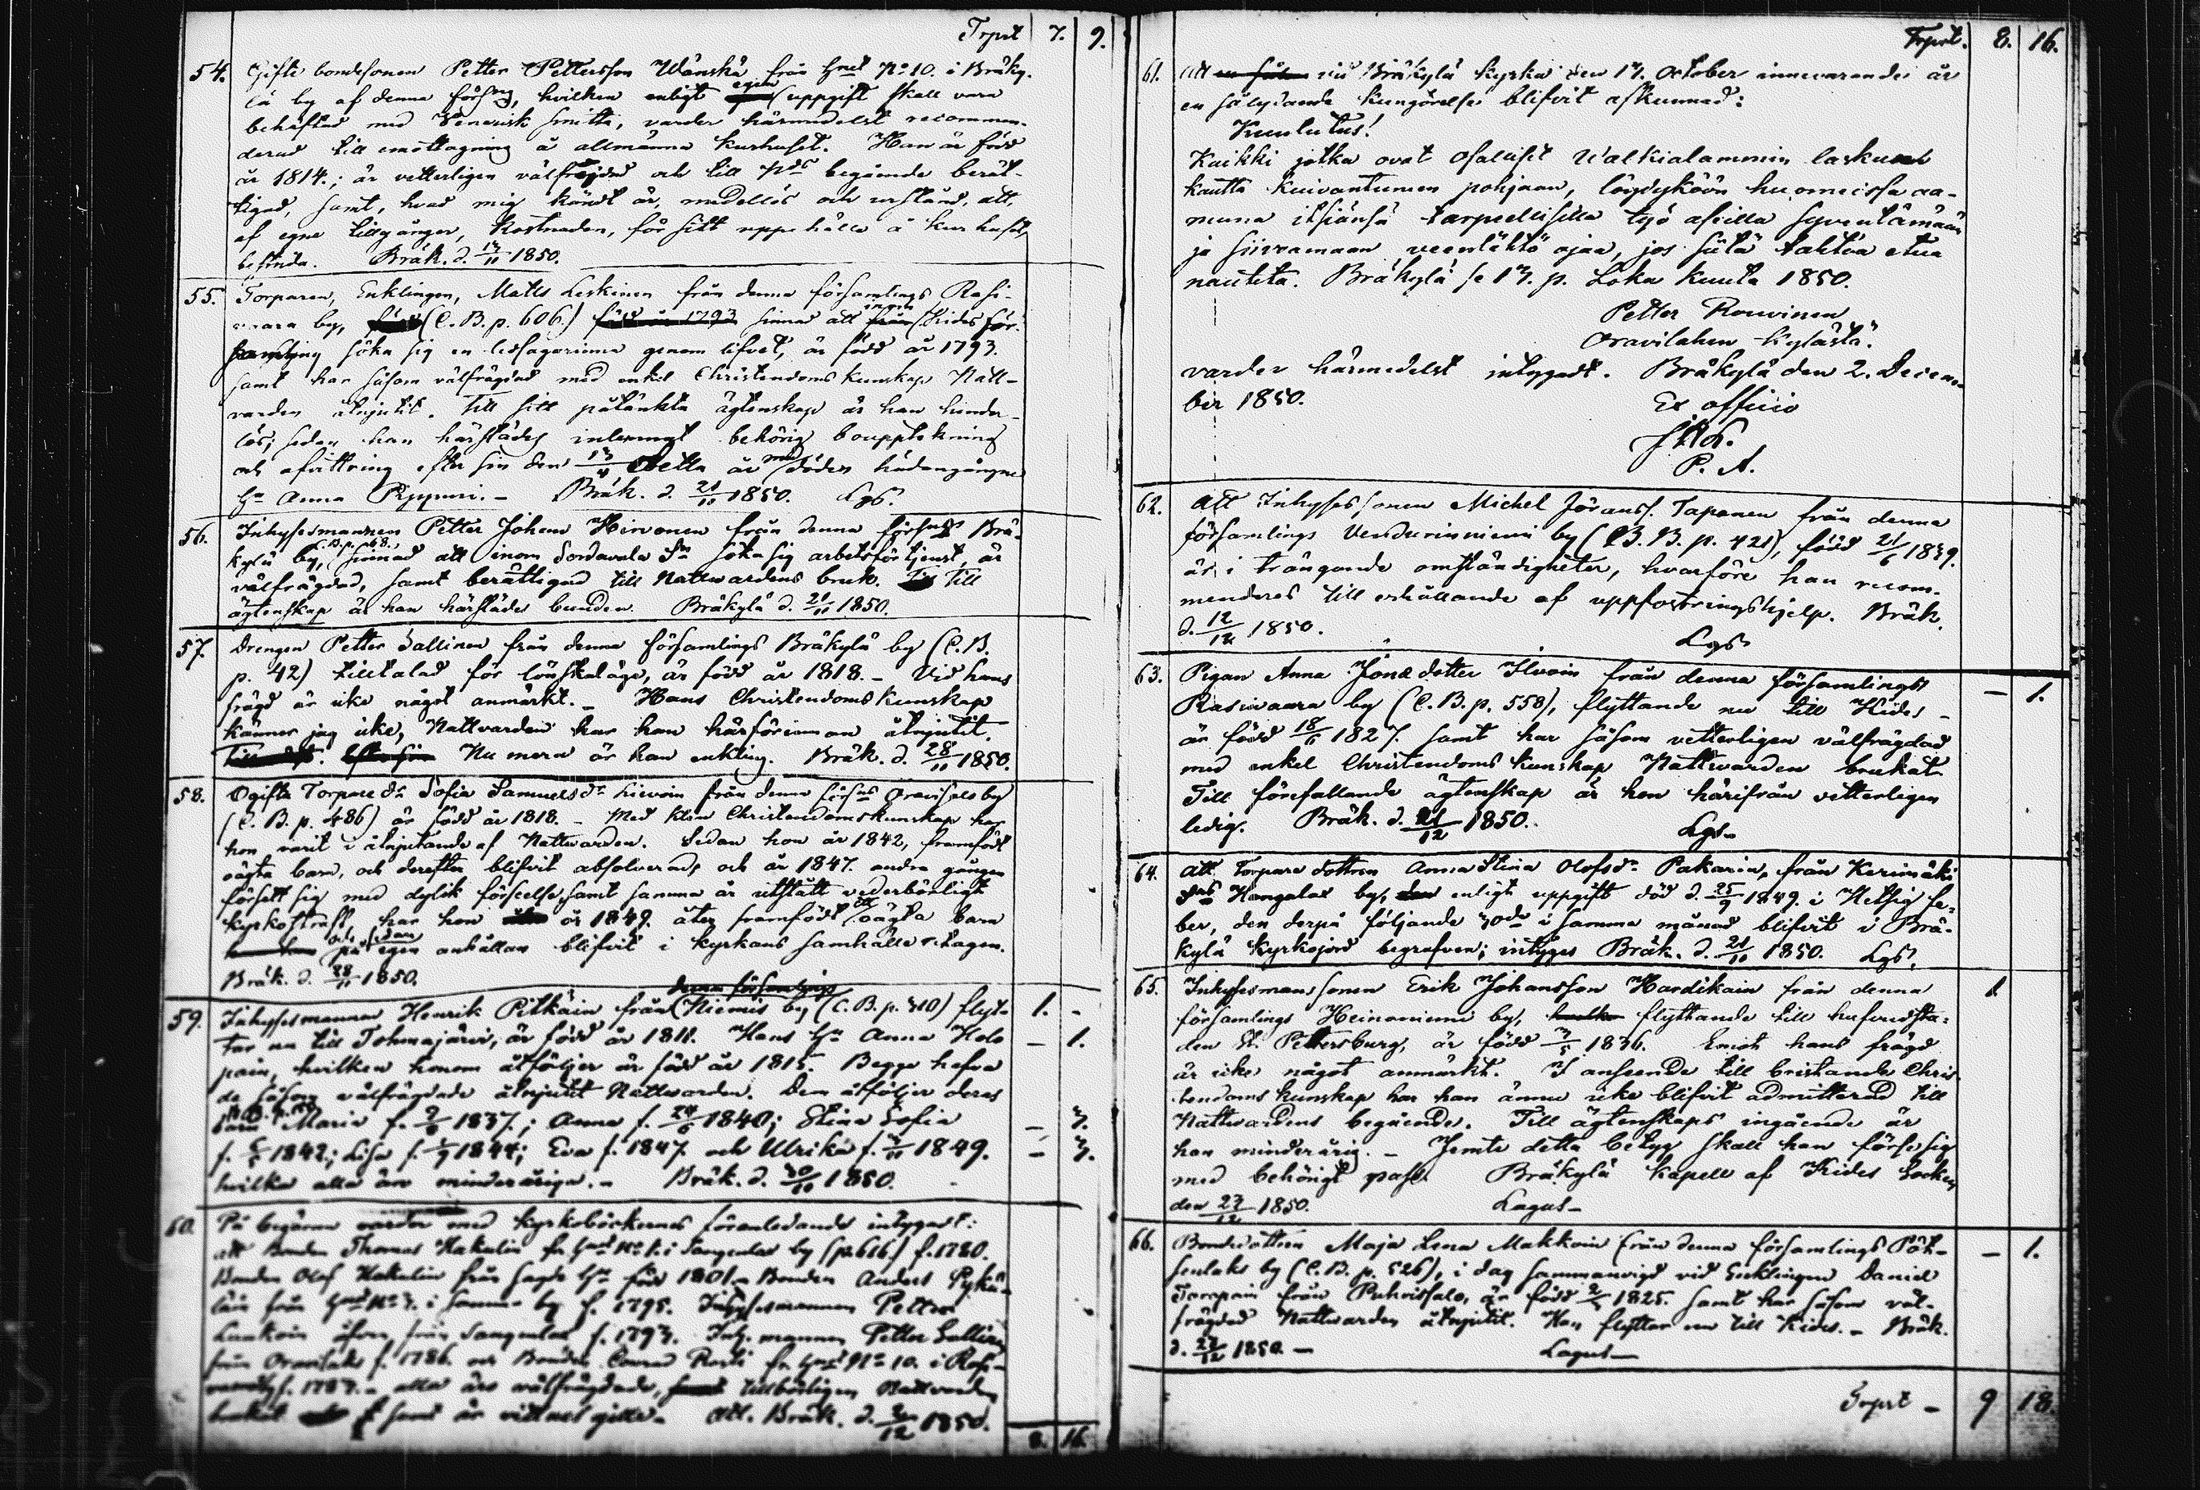 Trprt 7. 9.
54. Gifte bondesonen Petter Pettersson Wänskä från Hmt No 10. i Bräky-
lä by af denna förs:ng, hvilken enligt egen uppgift skall vara
behäftad med Venerisk smitta, varder härmedelst recommen-
derad till emottagning å allmänna kurhuset. Han är född
år 1814.; är vetterligen välfrejdad och till begående berät-
tigad, samt, hvad mig kändt är, medellös och urstånd, att
af egne tillgångar, kostnaden, för sitt uppehälle å kurhuset,
befinda. Bräk. d. 1850.
55. Torparen, Enklingen, Matts Leskinen från denna församlings Rasi-
vaara by, (C.B.p. 606.) född år 1793 sinnad att inom Kides för-
samling söka sig en ledsagarinna genom lifvet, är född år 1793.
samt har såsom välfrägdad med enkel Christendoms kunskap Natt-
varden åtnjutit. Till sitt påtänkta ägtenskap är han hinder-
lös, sedan han härstädes inlemnat behörig bouppteckning
och afvittring efter sin den detta år med döden hädangångne
Hu Anna Pyypuri. - Bräk. d. 21/11 1850. Lgs.
56. Inhysesmannen Petter Johan Hirvonen från denna förs:gs Brä-
kylä by, sinnad att inom Sordavala Sn söka sig arbetsförtjenst, är
välfrägdad, samt berättigad till Nattwardens bruk. Till
ägtenskap är han härstädes bunden. Bräkylä d. 21/11 1850.
57. Drengen Petter Sallinen från denna församlings Bräkylä by (C.B.
p. 42) tilltalad för lönskaläge, är född år 1818. - Vid hans
frägd är icke något anmärkt. - Hans Christendomskunskap
känner jag icke, Nattvarden har han härförinnan åtnjutit.
Nu mera är han enkling. Bräk. d. 28/11 1850.
58. Ogifta Torpare dr Sofia Samuels dr Hievoin från denna förs:gs Oravisalo by
(C.B. p. 486) är född år 1818. - Med klen Christendomskunskap har
hon varit i åtnjutande af Nattwarden. Sedan hon år 1842, framfödt
oägta barn, och derefter blifvit absolverad, och år 1847. andra gången
försett sig med dylik förseelse, samt samma år utstått vederbörligt
kyrkostraff, har hon år 1849. åter framfödt ett oägta barn
och sedan på egen anhållan blifvit i kyrkans samhälle intagen.
Bräk. d. 28/11 1850.
denna församlings
59. Inhysesmannen Henrik Pitkäin från Niemis by (C.B.p. 310) flyt- 1. -
tar nu till Tohmajärvi, är född år 1811. Hans Hu Anna Holo - 1.
pain, hvilken honom åtföljer är född år 1815. Begge hafva
de såsom välfrägdade åtnjutit Nattwarden. Dem åtföljer deras
barn Maria f. 1837.; Anna f. 1840; Stina Sofia - 3.
f. 1842; Lisa f. 1844; Eva f. 1847 och Ulrika f. 1849. - 3.
hvilka alla äro minderåriga. - Bräk. d. 1850.
60. På begäran varder med kyrkoböckernes föranledande intygadt:
att Bonden Thomas Hakulin fr. Hmt No 1. i Sangenlax by (p. 616.) f. 1780.
Bonden Olof Hakulin från sagde Hn född 1801. - Bonden Anders Pykä-
läin från Hmt No 3. i samma by f. 1795. Inhysesmannen Petter
Laakoin äfven från Sangenlax f. 1793. Inh. mannen Petter Sallinen
från Oravilaks f. 1786. och Bonden Conrad Rosti fr. Hmt No 10. i Rasi-
vaara by f. 1787. - alla äro välfrägdade, tillbörligen Nattvarden
brukat samt är vittnesgille. - Att. Bräk. d. 1850.
8. 16.
Trprt. 8. 16.
61. Att vid Bräkylä kyrka den 13. October innevarande år
en sålydande kungörelse blifvit afkunnad:
Kuulutus!
Kaikki jotka ovat osalliset Walkialammin laskun
kautta kuivantumen pohjaan, löydyköön huomeissa aa-
muna itsiänsä tarpeellisilla työ aseilla syventämään
ja siivvamaan veenlähtö ojaa, jos siitä tahtva etua
nautita. Bräkylä se 13. p. Loka kuuta 1850.
Petter Rouvinen
Oravilahen kylästä.
varder härmedelst intygadt. Bräkylä den 2. Decem-
ber 1850. Ex officio
P. A.
62. Att Inhyses sonen Michel Jöranss. Tapanen från denna
församlings Vendurinniemi by (C.B. p. 421), född 21/6 1839.
är i trängande omständigheter, hvarföre han recom-
menderas till erhållande af uppfostringshjelp. Bräk.
d. 12/12 1850. Lgs
63. Pigan Anna Jönsdotter Ilvoin från denna församlings
Rasivaara by (C.B.p. 558), flyttande nu till Kides - - 1.
är född 1827. samt har såsom vetterligen välfrägdad
med enkel Christendoms kunskap Nattwarden brukat.
Till förefallande ägtenskap är hon härifrån vetterligen
ledig. Bräk. d. 21/12 1850. Lgs-
64. Att Torpare dottren Anna Stina Olofsdr Pakarin, från Kerimäki
Sns Hangalax by, enligt uppgift död d. 25/9 1849. i Hetsig fe-
ber, den derpå följande 30de i samma månad blifvit i Brä-
kylä kyrkojord begrafven; intyges Bräk. d. 1850. Lgs.
65. Inhysesmans sonen Erik Johansson Hardikain från denna 1.
församlings Heinoniemi by, flyttande till hufvudsta-
den St. Petersburg, är född 3/5 1836. Emot hans frägd
är icke något anmärkt. I anseende till bristande Chris-
tendoms kunskap har han ännu icke blifvit admitterad till
Nattwardens begående. Till ägtenskaps ingående är
han minderårig. - Jemte detta betyg skall han förse sig
med behörigt pass. Bräkylä kapell af Kides Socken
den 27/12 1850. Lagus-
66. Bondedottren Maja Lena Makkoin från denna församlings Pöt- - 1.
sönlaks by (C.B. p. 526), i dag sammanvigd vid Enklingen Daniel
Torvpain från Puhoissalo, är född 1825. samt har såsom väl-
frägdad Nattwarden åtnjutit. Hon flyttar nu till Kides. - Bräk.
d. 27/12 1850 - Lagus-
Trprt - 9 18.